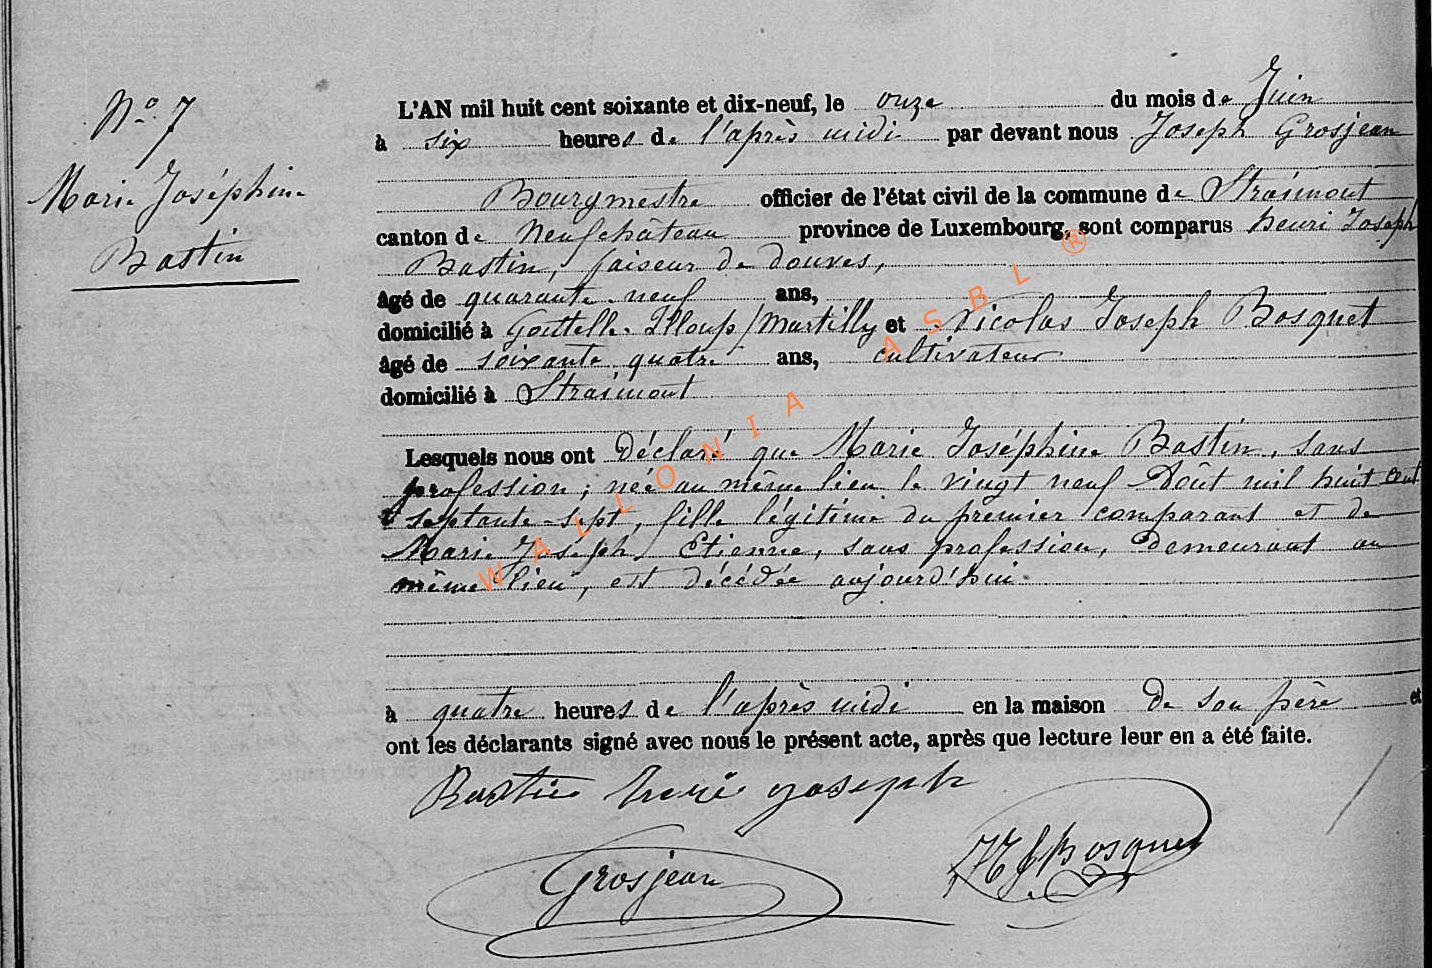 N° 7
Marie Joséphine
Bastin
L'AN mil huit cent soixante et dix-neuf, le onze du mois de Juin
à six heures de l'après midi par devant nous Joseph Grosjean
Bourgmestre officier de l'état civil de la commune de Straimont
canton de Neufchâteau province de Luxembourg, sont comparus henri Joseph
Bastin, faiseur de douves,
âgé de quarante-neuf ans,
domicilié à Martilly et Nicolas Joseph Bosquet
âgé de soixante quatre ans, cultivateur
domicilié à Straimont
Lesquels nous ont Déclaré que Marie Joséphine Bastin, sans
profession; née au même lieu le vingt neuf Août mil huit cent
septante-sept, fille légitime du premier comparant et de
Marie Joseph Etienne, sans profession, demeurant au
même lieu, est décédée aujourd'hui
à quatre heures de l'après midi en la maison De son père et
ont les déclarants signé avec nous le présent acte, après que lecture leur en a été faite.
Bastin henri joseph
Grosjean
NJ Bosquet
WALLONIA ASBL ®